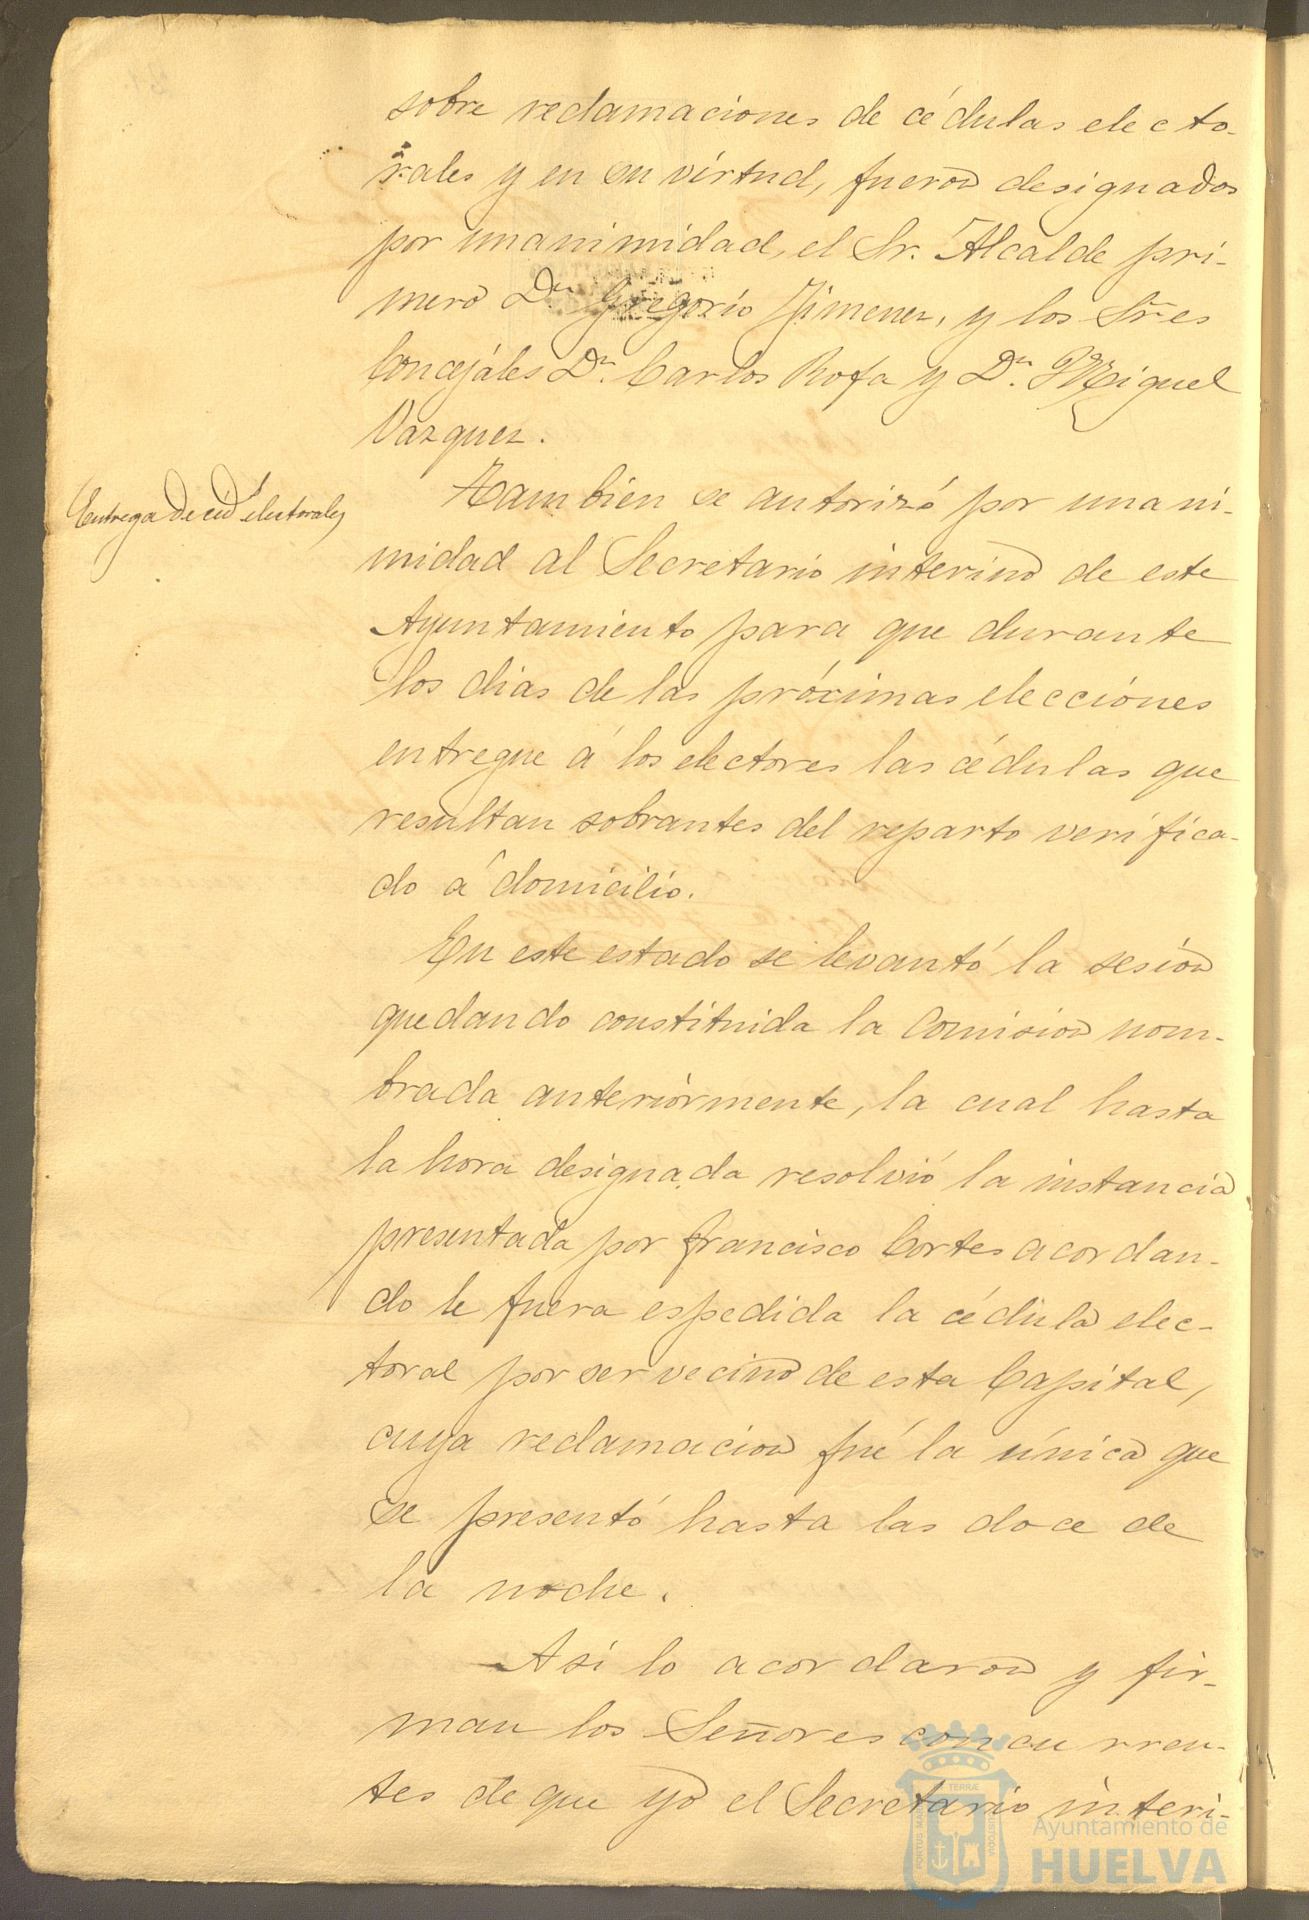 sobre reclamaciones de cédulas electo-
rales y en su virtud, fueron designados
por unanimidad, el Sr. Alcalde pri-
mero Dn Gregorio Jimenez, y los Sres
Concejáles Dn. Carlos Rofa y Dn. Miguel
Vazquez.
Entrega de céd electorales
Tambien se autorizó por unani-
midad al Secretario interino de este
Ayuntamiento para que durante
los dias de las próximas elecciónes
entregue á los electores las cédulas que
resultan sobrantes del reparto verifica-
do á domicilio.
En este estado se levantó la sesión
quedando constituida la Comision nom-
brada anteriórmente, la cual hasta
la hora designada resolvió la instancia
presentada por Francisco Cortes acordan-
do le fuera espedida la cédula elec-
toral por ser vecino de esta Capital,
cuya reclamacion fué la única que
se presentó hasta las doce de
la noche.
Asi lo acordaron y fir-
man los Señores concurren-
tes de que yo el Secretario interi-
PORTUS MARIS ET TERRÆ CUSTODIA
Ayuntamiento de
HUELVA